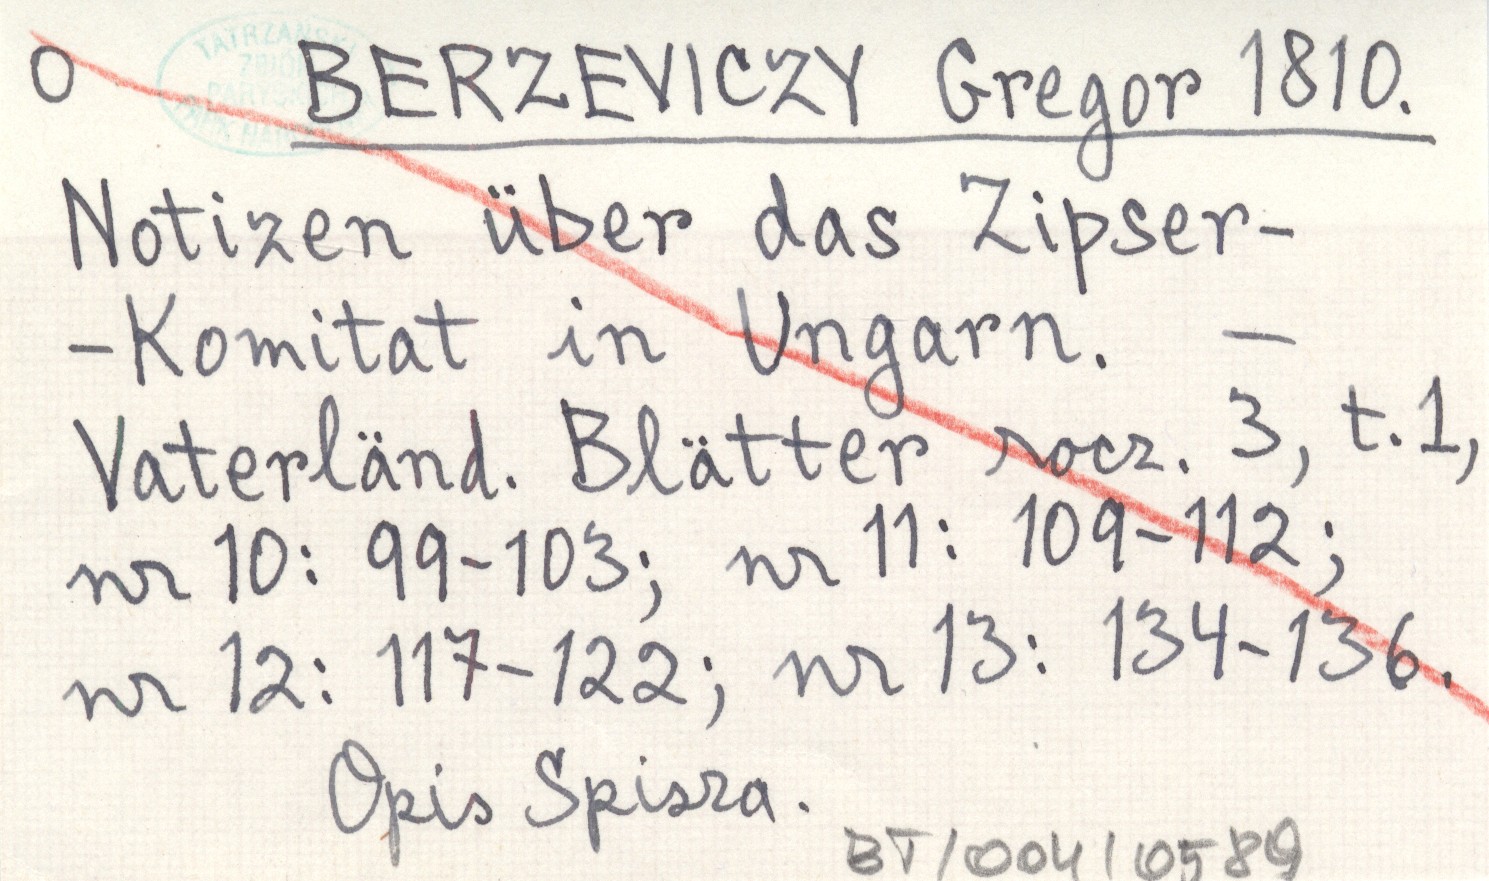 O BERZEVICZY Gregor 1810.
TATRZAŃSKI
ZBIÓR
Notizen über das Zipser-
-Komitat in Ungarn. —
Vaterländ. Blätter rocz. 3, t. 1,
nr 10: 99-103; nr 11: 109-112;
nr 12: 117-122; nr 13: 134-136.
Opis Spisza.
BT/004/0589